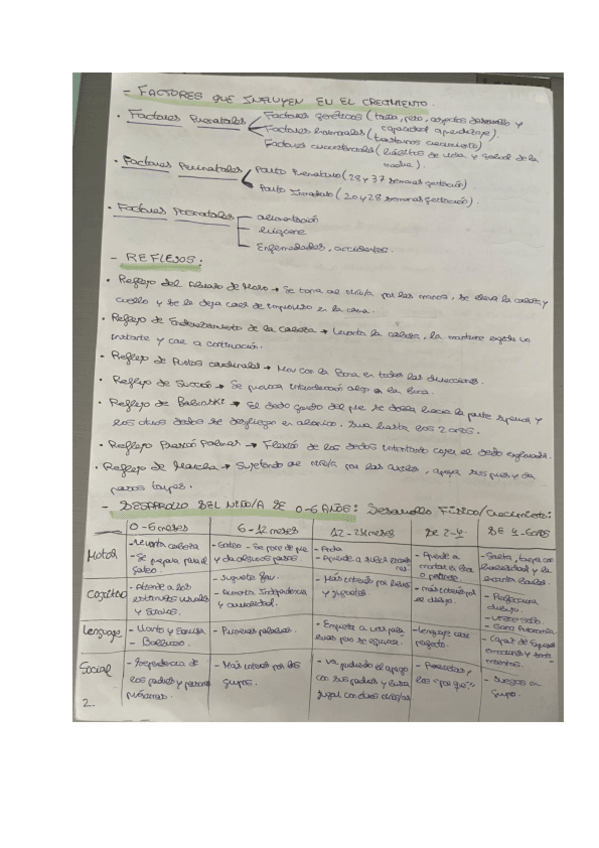 - FACTORES QUE INFLUYEN EN EL CRECIMIENTO.
• Factores Prenatales
Factores genéticos (talla, peso, aspectos desarrollo y
capacidad aprendizaje).
Factores hormonales (trastornos crecimiento)
Factores (hábitos de vida y salud de la
madre).
• Factores Perinatales
Parto Prematuro (28 y 37 semanas gestación).
Parto Inmaduro (20 y 28 semanas gestación).
• Factores Posnatales
alimentación
higiene
Enfermedades, accidentes.
- REFLEJOS:
• Reflejo del Abrazo de Moro → Se toma al niño/a por las manos, se eleva la cabeza y
cuello y se le deja caer de improviso en la cama.
• Reflejo de Enderezamiento de la Cabeza → Levanta la cabeza, la mantiene un
instante y cae a continuación.
• Reflejo de Puntos cardinales → Mov con la Boca en todas las direcciones.
• Reflejo de Succión → Se provoca introduciendo algo en la boca.
• Reflejo de Babinski → El dedo gordo del pie se dobla hacia la parte superior y
los otros dedos se despliegan en abanico. Dura hasta los 2 años.
• Reflejo Presión Palmar → Flexión de los dedos intentando coger el dedo
• Reflejo de Marcha → Sujetando al niño/a por las axilas, apoya sus pies y da
pasos
- DESARROLLO DEL NIÑO/A DE 0-6 AÑOS: Desarrollo Físico/Crecimiento:
0-6 meses
6-12 meses
12-24 meses
DE 2-4
DE 4-6 años
Motor
- Levanta cabeza
- Se prepara para el
gateo.
- Gateo - Se pone de pie
y da algunos pasos
- Anda
- Aprende a subir
- Aprende a
- Salta, trepa con
y la
Cognitivo
- Atiende a los
estímulos visuales
y sonoros.
- Juguete fav.
- Aumenta Independencia
y curiosidad.
- Más interés por
y juguetes.
- más interés por
el dibujo.
- Perfecciona
dibujo.
- Gana Autonomía
Lenguaje
- Llanto y Sonrisa
- Balbuceo.
- Primeras palabras.
- Empieza a usar
frases pero se equivoca.
- Lenguaje casi
perfecto.
- Capaz de expresar
emociones y senti-
mientos.
Social
- Dependencia de
los padres y personas
próximas.
- Más interés por los
grupos.
- Va perdiendo el apego
con sus padres y busca
jugar con otros
- Preguntas y
los "por qué"
- Juegos en
grupo.
2.